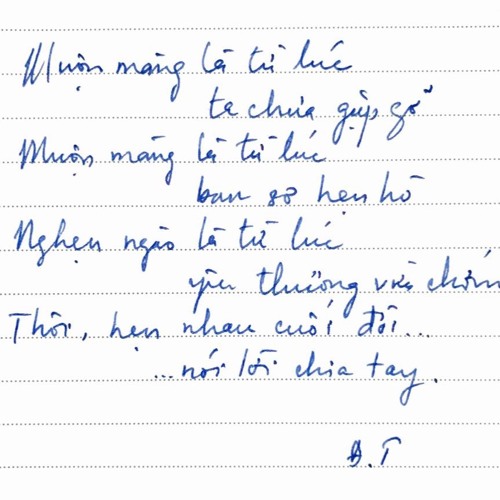 Muộn màng là từ lúc
ta chưa gặp gỡ
Muộn màng là từ lúc
ban sơ hẹn hò
Nghẹn ngào là từ lúc
yêu thương vừa chớm
Thôi, hẹn nhau cuối đời...
...nói lời chia tay.
Đ.T